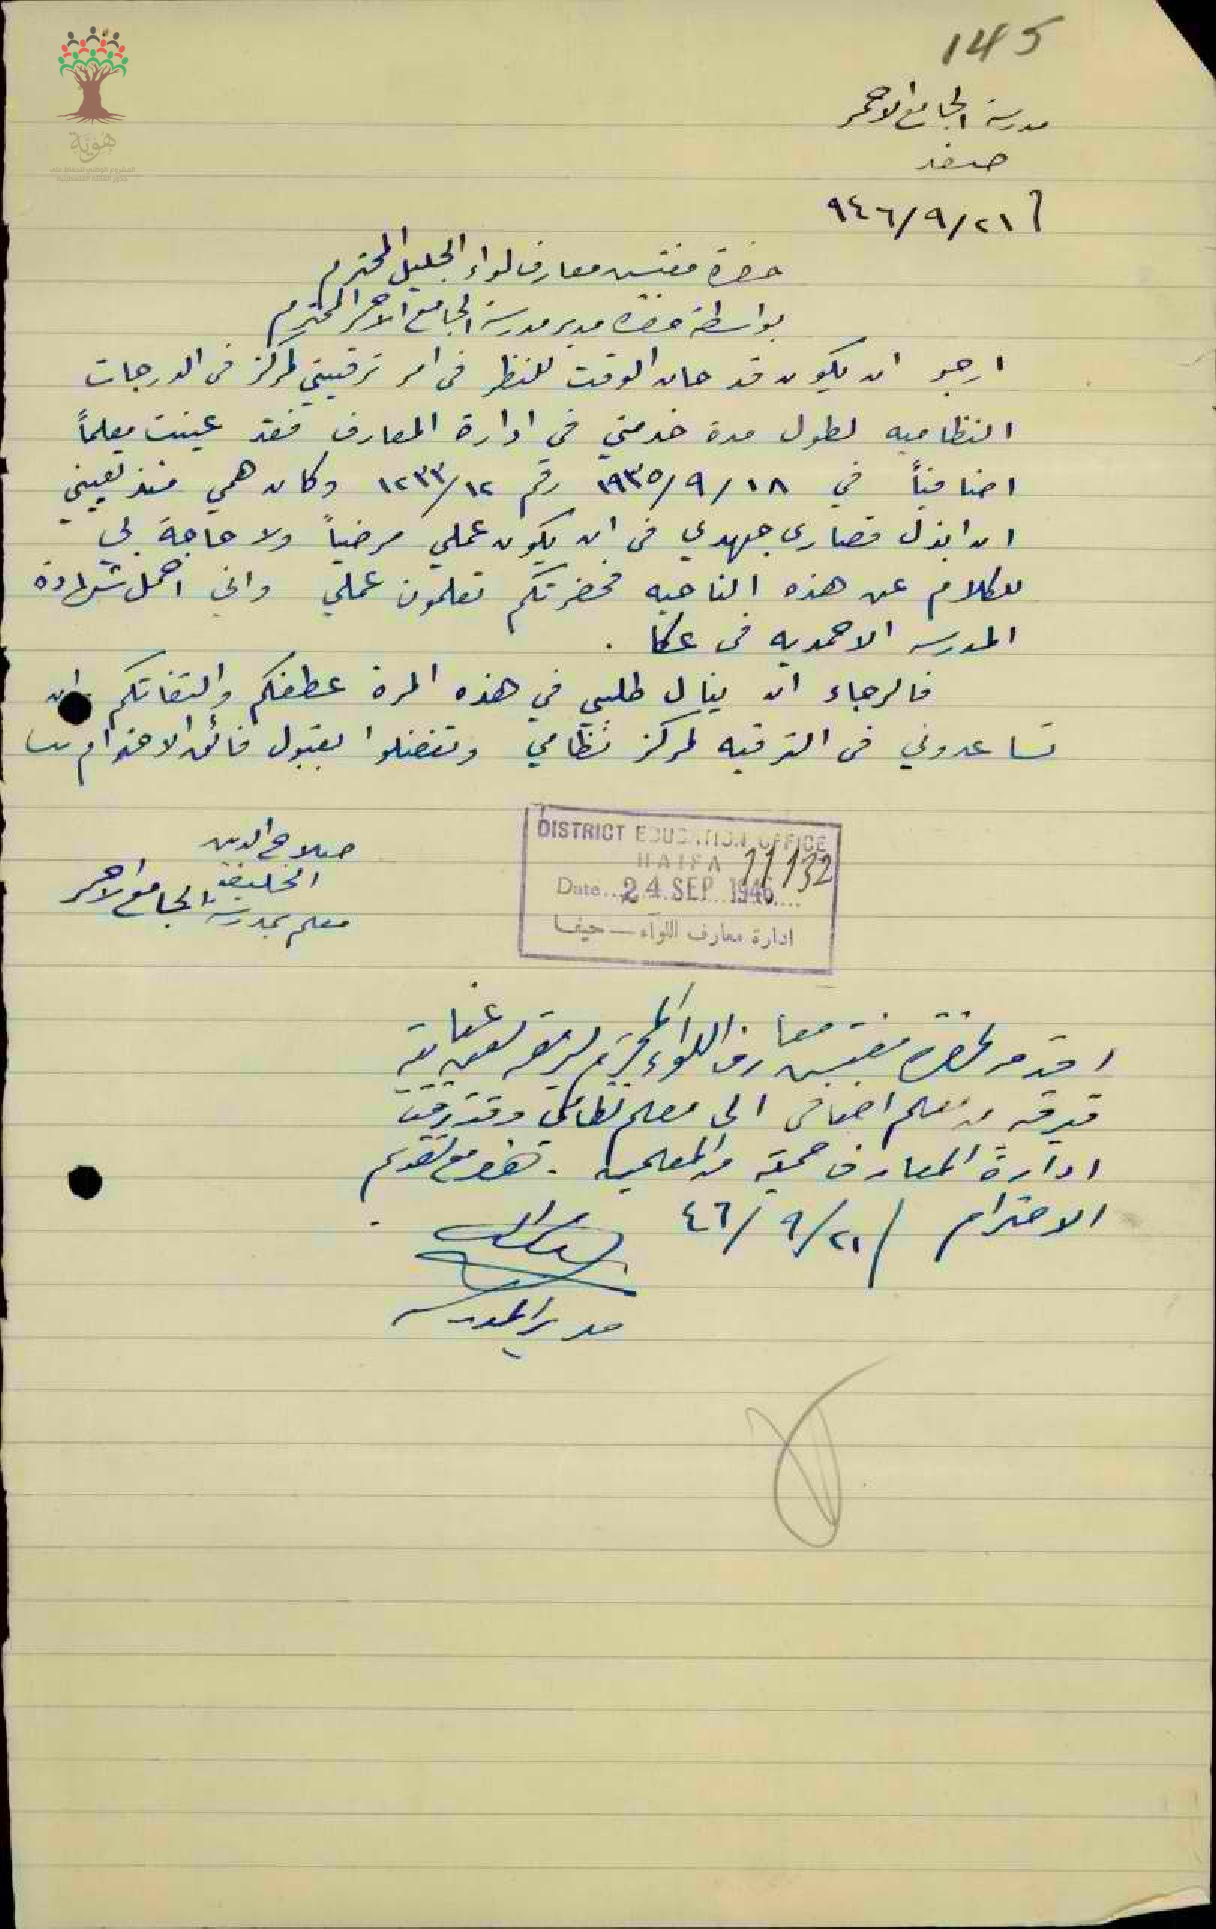 145
مدرسة الجامع الاحمر
صفد
٩٤٦/٩/٢١
حضرة مفتش معارف لواء الجليل المحترم
بواسطة حضرة مدير مدرسة الجامع الاحمر المحترم
ارجو ان يكون قد حان الوقت للنظر في امر ترقيتي لمركز في الدرجات
النظاميه لطول مدة خدمتي في ادارة المعارف فقد عينت معلماً
اضافياً في ١٩٣٥/٩/١٨ رقم ١٢٣٣/١٢ وكان همي منذ تعييني
ان ابذل قصارى جهدي في ان يكون عملي مرضياً ولا حاجة لي
للكلام عن هذه الناحيه فحضرتكم تعلمون عملي واني احمل شهادة
المدرسه الاحمديه في عكا .
فالرجاء ان ينال طلبي في هذه المرة عطفكم والتفاتكم وان
تساعدوني في الترقيه لمركز نظامي وتفضلوا بقبول فائق الاحترام
صلاح الدين
الخليفة
معلم بمدرسة الجامع الاحمر
DISTRICT EDUCATION OFFICE
HAIFA 11/132
Date 24 SEP 1946
ادارة معارف اللوآء — حيفا
اقدم لحضرة مفتش معارف اللواء المحترم
من معلم اضافي الى معلم نظامي وقد
ادارة المعارف من المعلمين . مع تقديم
الاحترام ٤٦/٩/٢١
مدير المدرسه
هوية